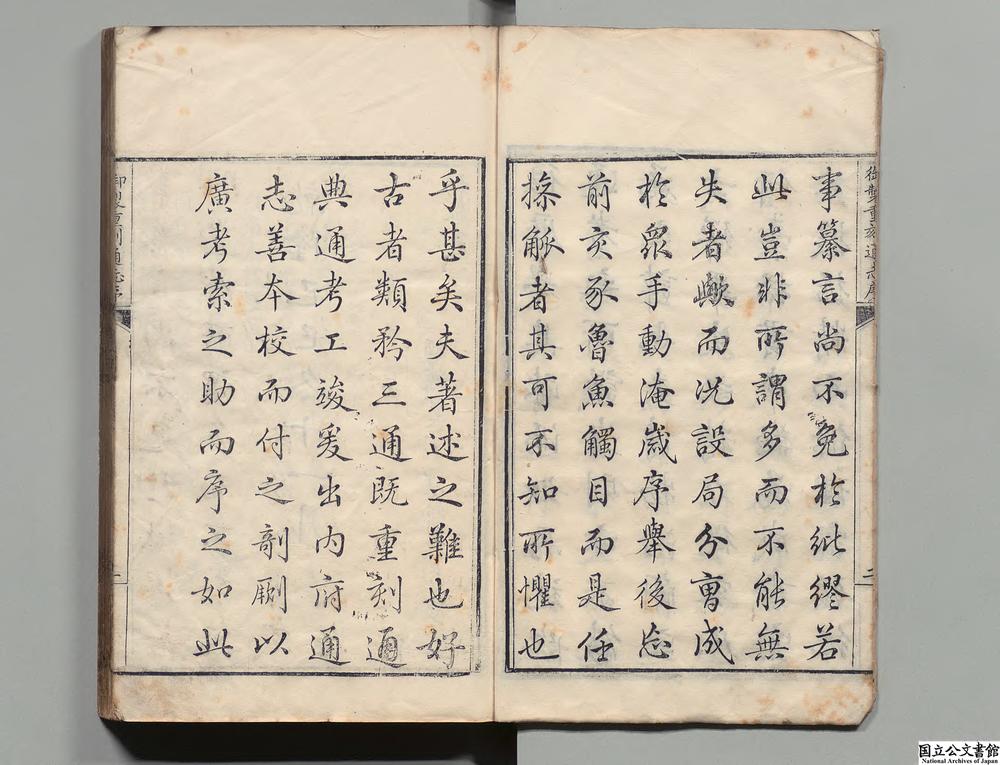 御製重刻通志序
二
事纂言尚不免於紕繆若
此豈非所謂多而不能無
失者歟而況設局分曹成
於眾手動淹歲序舉後忘
前亥豕魯魚觸目而是任
操觚者其可不知所懼也
乎甚矣夫著述之難也好
古者類矜三通既重刻通
典通考工竣爰出內府通
志善本校而付之剞劂以
廣考索之助而序之如此
国立公文書館
National Archives of Japan